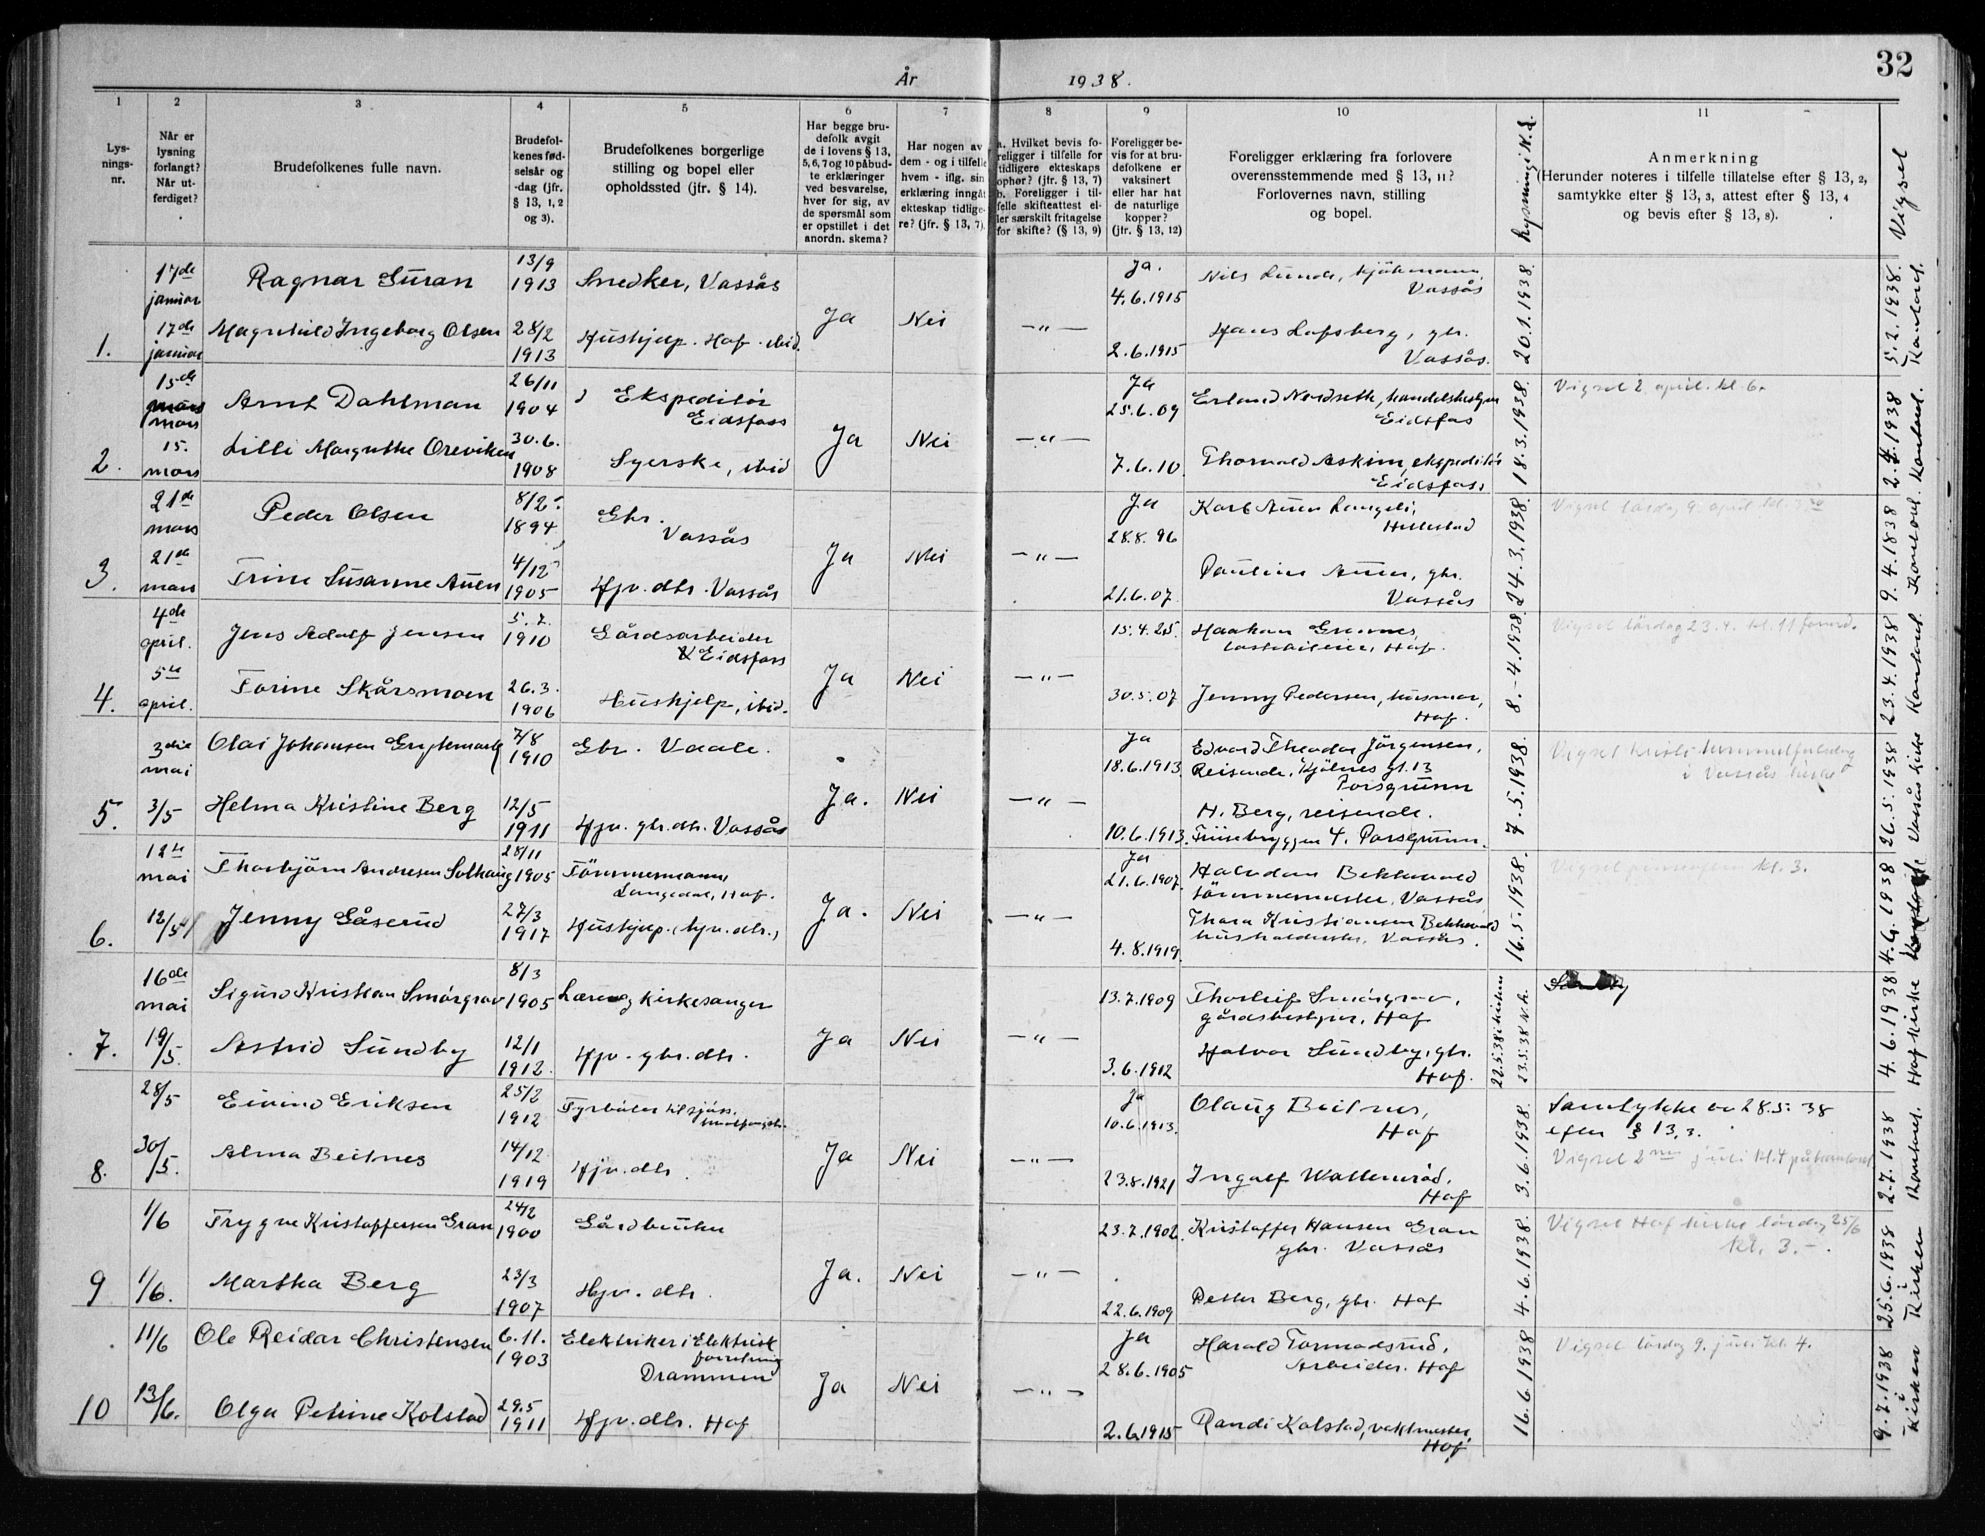 32
År 1938.
1 2 3 4 5 6 7 8 9 10 11
Lys-
nings-
nr.
Når er
lysning
forlangt?
Når ut-
ferdiget?
Brudefolkenes fulle navn.
Brudefol-
kenes fød-
selsår og
-dag (jfr.
§ 13, 1, 2
og 3).
Brudefolkenes borgerlige
stilling og bopel eller
opholdssted (jfr. § 14).
Har begge bru-
defolk avgit
de i lovens § 13,
5, 6, 7 og 10 påbud-
te erklæringer
ved besvarelse,
hver for sig, av
de spørsmål som
er opstillet i det
anordn. skema?
Har nogen av
dem - og i tilfelle
hvem - iflg. sin
erklæring inngåt
ekteskap tidlige-
re? (jfr. § 13, 7).
a. Hvilket bevis fo-
religger i tilfelle for
tidligere ekteskaps
ophør? (jfr. § 13, 7)
b. Foreligger i til-
felle skifteattest el-
ler særskilt fritagelse
for skifte? (§ 13, 9)
Foreligger be-
vis for at bru-
defolkene er
vaksinert
eller har hat
de naturlige
kopper?
(jfr. § 13, 12)
Foreligger erklæring fra forlovere
overensstemmende med § 13, 11?
Forlovernes navn, stilling
og bopel.
Lysning i N.L.
Anmerkning
(Herunder noteres i tilfelle tillatelse efter § 13, 2,
samtykke efter § 13, 3, attest efter § 13, 4
og bevis efter § 13, 8).
Vigsel
1.
17de januar
Ragnar Suran
13/9 1913
Snedker, Vassås
Ja.
4.6.1915
Nils Lunde,
Vassås
17de januar
Magnhild Ingeborg Olsen
28/2 1913
Hushjelp. Hof. ibid.
Ja
Nei
—"—
2.6.1915
Hans Lofsberg, gbr.
Vassås.
20.1.1938.
5.2.1938. Kontoret.
2.
15de mars
Arnt Dahlman
26/11 1904
Ekspeditør
Eidsfoss
Ja
25.6.09
Erland Nordseth, handelsbestyrer
Eidsfos
15. mars
Lilli Margrethe Oreviken
30.6. 1908
Syerske, ibid
Ja
Nei
—"—
7.6.10.
Thorvald Askim, ekspeditør
Eidsfoss
18.3.1938.
Vigsel 2 april. kl. 6.
2.4.1938 Kontoret.
3.
21de mars
Peder Olsen
8/2 1894
Gbr.
Vassås
Ja
28.8.96
Karl Auen
Hillestad
21de mars
Trine Susanne Auen
4/12 1905
Hjv. dtr. Vassås
Ja
Nei
—"—
21.6.07.
Pauline Auen, gbr.
Vassås
24.3.1938.
Vigsel lördag 9. april kl.
9.4.1838 Kontoret.
4.
4de april.
Jens Adolf Jensen
5.7. 1910
Gårdsarbeider
Eidsfoss
15.4.25.
Haakon Grennes,
lastebileier, Hof.
5te april.
Torine Skårsmoen
26.3. 1906
Hushjelp, ibid.
Ja
Nei
—"—
30.5.07
Jenny Pedersen, husmor,
Hof.
8.-4.1938.
Vigsel lördag 23.4. kl. 11 formd.
23.4.1938 Kontoret.
5.
3die mai
Olai Johansen
7/8 1910
Gbr. Vaale.
Ja
18.6.1913.
Edvard Theodor Jörgensen,
Reisende, Kjölnes gt. 13
Porsgrunn
3/5
Helma Kristine Berg
12/5 1911
Hjv. gbr. dtr. Vassås
Ja.
Nei
—"—
10.6.1913.
H. Berg, reisende.
Friisebryggen 4. Porsgrunn.
7.5.1938.
Vigsel Kristi himmelfartsdag
i Vassås kirke
26.5.1938 Vassås kirke
6.
12te mai
Thorbjörn Andresen Solhaug
28/11 1905
Tömmermann
Langedal, Hof.
Ja
21.6.1907.
Halvdan Bekkevold
tömmermester, Vassås
12/5
Jenny Gåserud
27/3 1917
Hushjelp. (hjv. dtr.)
Ja.
Nei
—"—
4.8.1919.
Thora Kristiansen Bekkevold
husholderske, Vassås.
16.5.1938.
Vigsel pinseaften kl. 3.
4.6.1938
7.
16de mai
Sigurd Kristian Smörgrav
8/3 1905
Lærer og Kirkesanger
13.7.1909
Thorleif Smörgrav,
gårdsbestyrer, Hof
19/5.
Astrid Sundby
12/1 1912.
Hjv. gbr. dtr.
Ja
Nei
—"—
3.6.1912
Halvor Sundby, gbr.
Hof.
22.5.38 i kirken
23.5.38 N.L.
4.6.1938 Hof kirke
8.
28/5
Eivind Eriksen
25/2 1912
Fyrböter tilsjöss.
Ja
10.6.1913.
Olaug Beitnes,
Hof
30/5.
Alma Beitnes
14/12 1919
Hjv. dtr.
Ja
Nei
—"—
23.8.1921
Ingolf Wallenröd,
Hof
3.6.1938.
Samtykke av 28.5.38
efter § 13, 3.
Vigsel 2nen juli kl. 4 på kontoret
2.7.1938 Kontoret.
9
1/6
Trygve Kristoffersen Gran
24/2 1900
Gårdbruker
23.7.1902.
Kristoffer Hansen Gran
gbr. Vassås
1/6.
Martha Berg
23/3 1907
Hjv. dtr.
Ja.
Nei
—"—
22.6.1909
Petter Berg, gbr. Hof
4.6.1938.
Vigsel Hof kirke lördag 25/6
kl. 3.-.
25.6.1938 i Kirken
10
11/6
Ole Reidar Christensen
6.11. 1903
Elektriker i Elektrisk
forretning
Drammen
Ja
28.6.1905
Harald Tormodsrud,
Arbeider. Hof
13/6.
Olga Petrine Kolstad
29.5 1911
Hjv. dtr. Hof
Ja
Nei
—"—
2.6.1915
Randi Kolstad, vaktmester,
Hof
16.6.1938
Vigsel lördag 9. juli kl. 4.
9.7.1938 i kirken